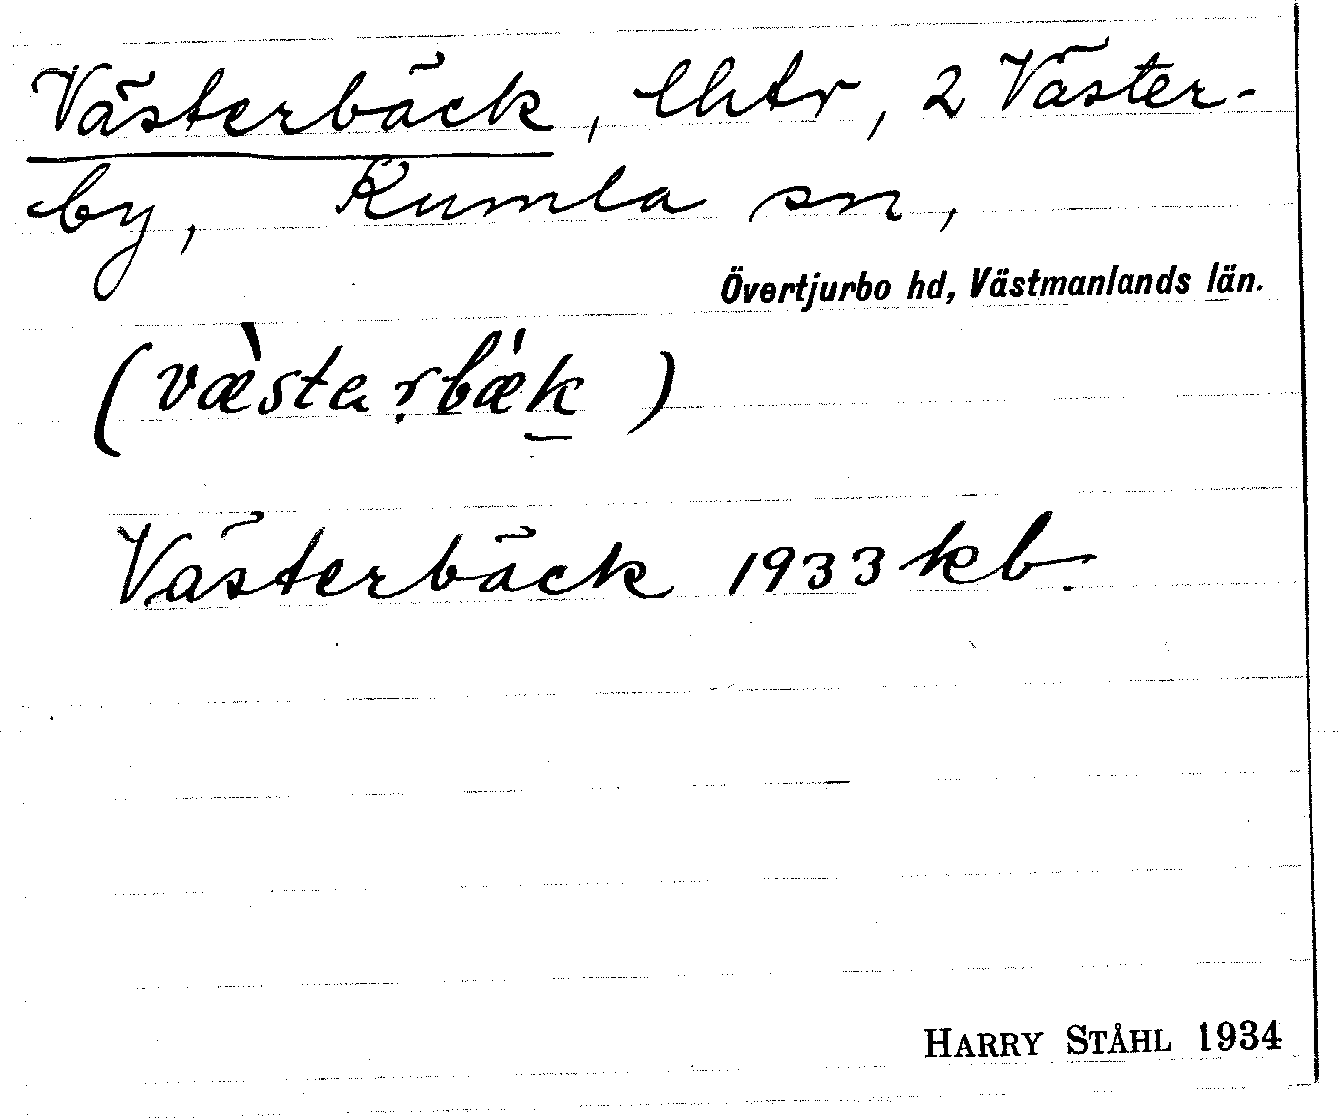 Västerbäck, lhtr, 2 Väster-
by, Kumla sn,
Övertjurbo hd, Västmanlands län.
(væ̀starbǽk)
Västerbäck 1933 kb.
HARRY STÅHL 1934